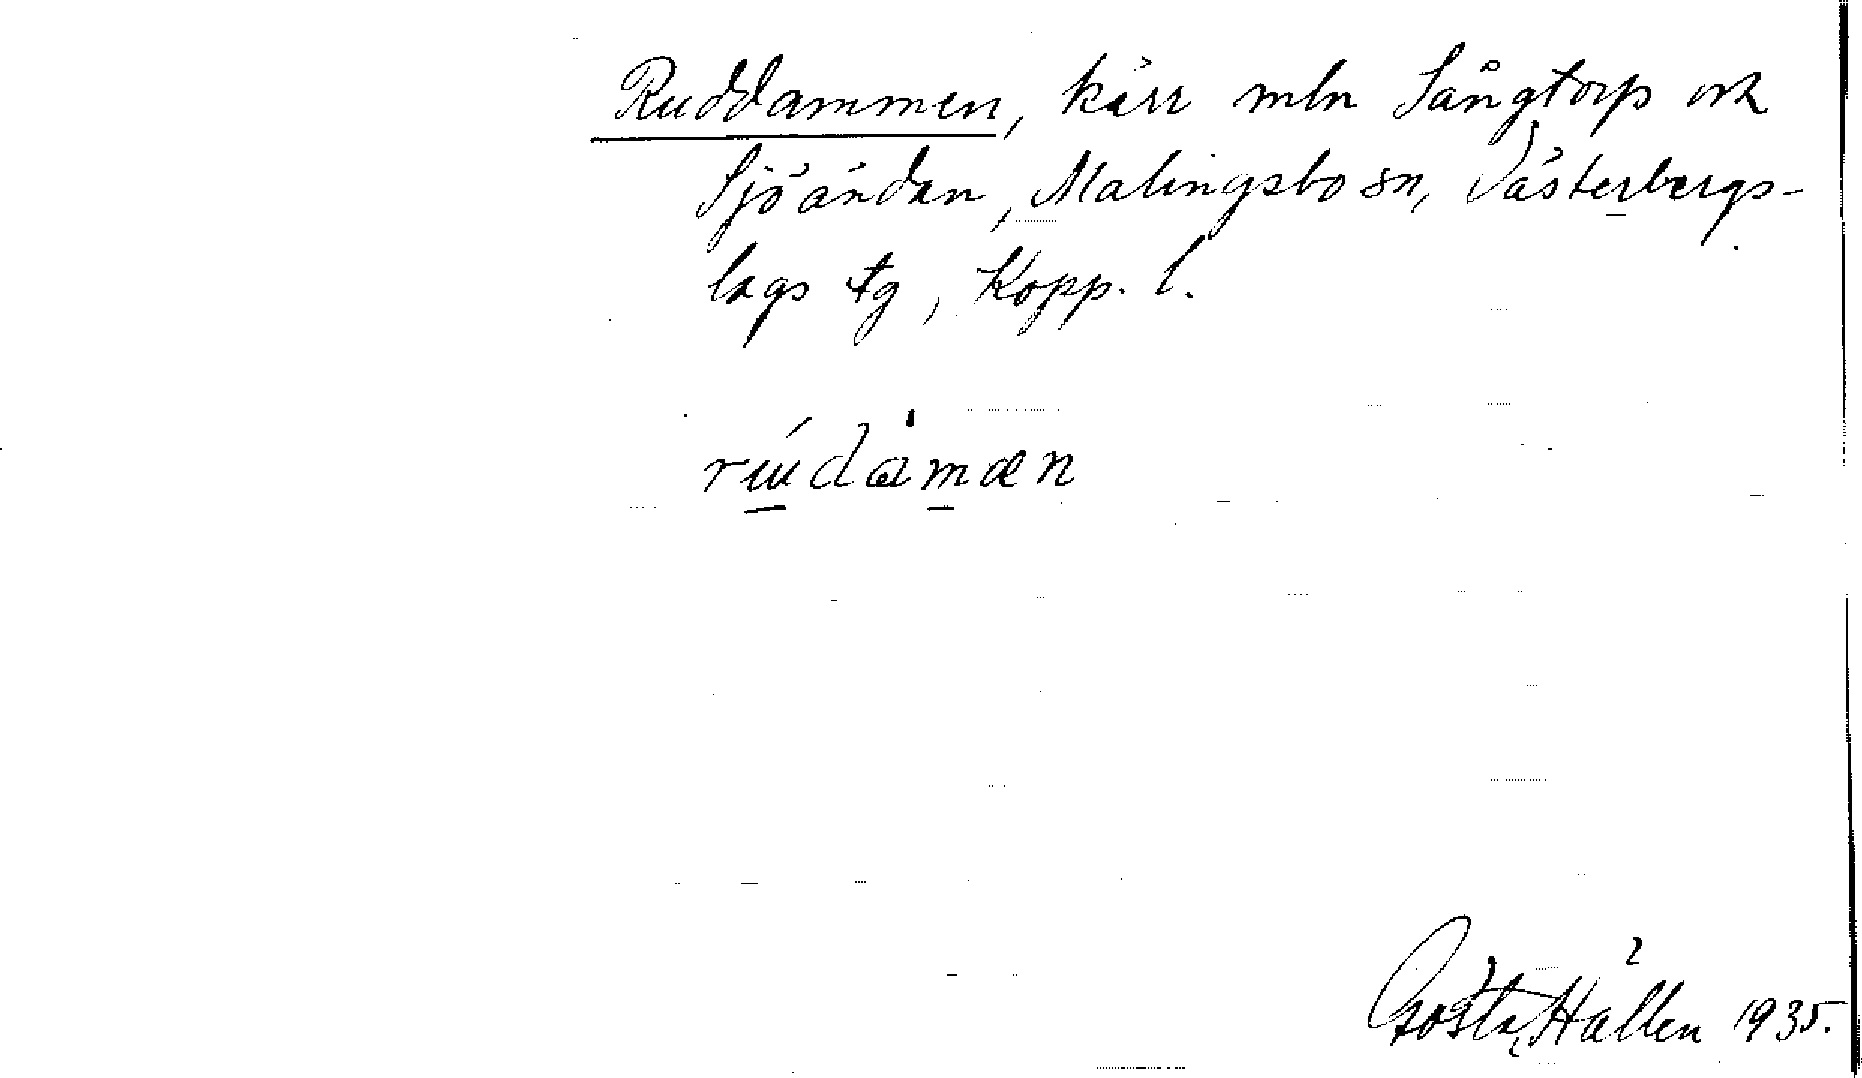 Ruddammen, kärr mln Sångtorp och
Sjöändan, Malingsbo sn, Västerbergs-
lags tg, Kopp. l.
rudamæn
Gösta Hällen 1935.